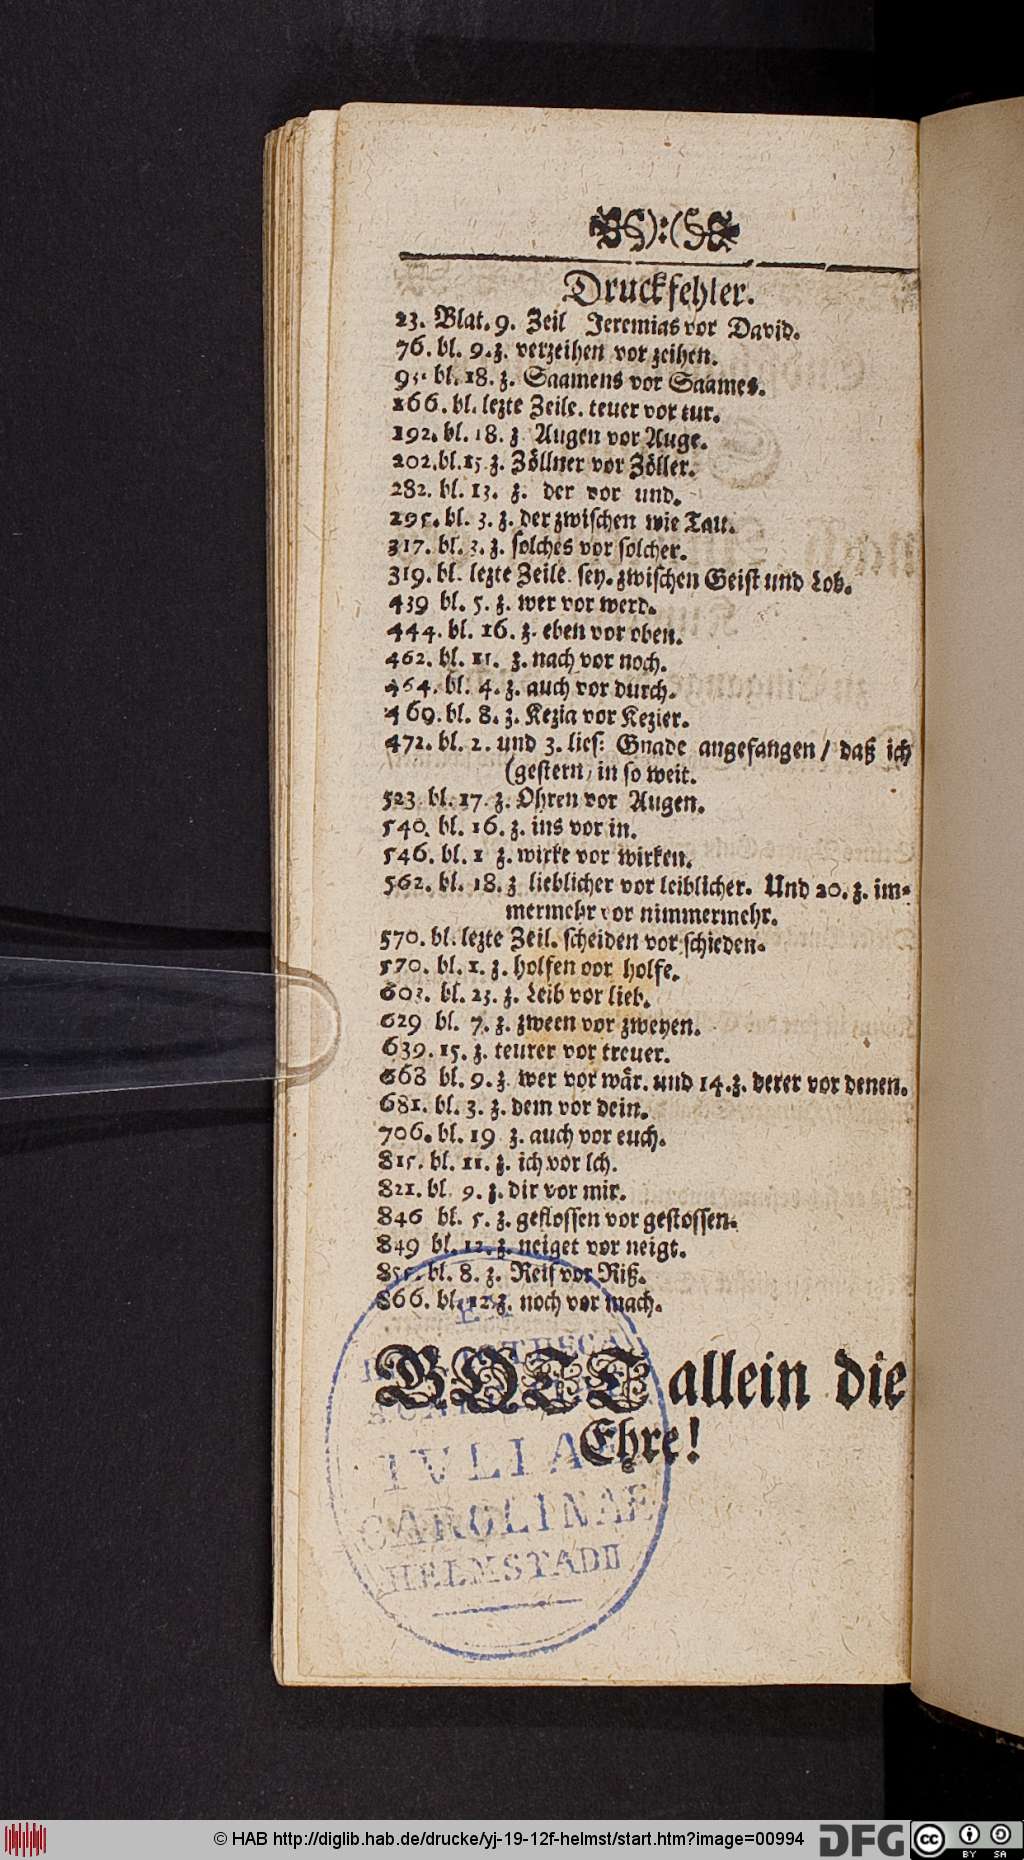 Druckfehler.
23. Blat. 9. Zeil Jeremias vor David.
76. bl. 9. z. verzeihen vor zeihen.
95. bl. 18. z. Saamens vor Saames.
166. bl. lezte Zeile. teuer vor tur.
192. bl. 18. z. Augen vor Auge.
202. bl. 15 z. Zöllner vor Zöller.
282. bl. 13. z. der vor und.
295. bl. 3. z. der zwischen wie Tau.
317. bl. 3. z. solches vor solcher.
319. bl. lezte Zeile. sey. zwischen Geist und Lob.
439 bl. 5. z. wer vor werd.
444. bl. 16. z. eben vor oben.
462. bl. 11. z. nach vor noch.
464. bl. 4. z. auch vor durch.
469. bl. 8. z. Kezia vor Kezier.
472. bl. 2. und 3. lies: Gnade angefangen / daß ich
(gestern / in so weit.
523 bl. 17. z. Ohren vor Augen.
540. bl. 16. z. ins vor in.
546. bl. 1 z. wirke vor wirken.
562. bl. 18. z lieblicher vor leiblicher. Und 20. z. im-
mermehr vor nimmermehr.
570. bl. lezte Zeil. scheiden vor schieden.
570. bl. 1. z. holfen oor holfe.
603. bl. 23. z. Leib vor lieb.
629 bl. 7. z. zween vor zweyen.
639. 15. z. teurer vor treuer.
668 bl. 9. z wer vor wär. und 14. z. derer vor denen.
681. bl. 3. z. dem vor dein.
706. bl. 19 z. auch vor euch.
815. bl. 11. z. ich vor lch.
821. bl. 9. z. dir vor mir.
846 bl. 5. z. geflossen vor gestossen.
849 bl. 12. z. neiget vor neigt.
855. bl. 8. z. Reis vor Riß.
866. bl. 12 z. noch vor mach.
GOTT allein die
Ehre!
EX
IVLIAE
CAROLINAE
HELMSTADII
© HAB http://diglib.hab.de/drucke/yj-19-12f-helmst/start.htm?image=00994
DFG
cc
BY SA